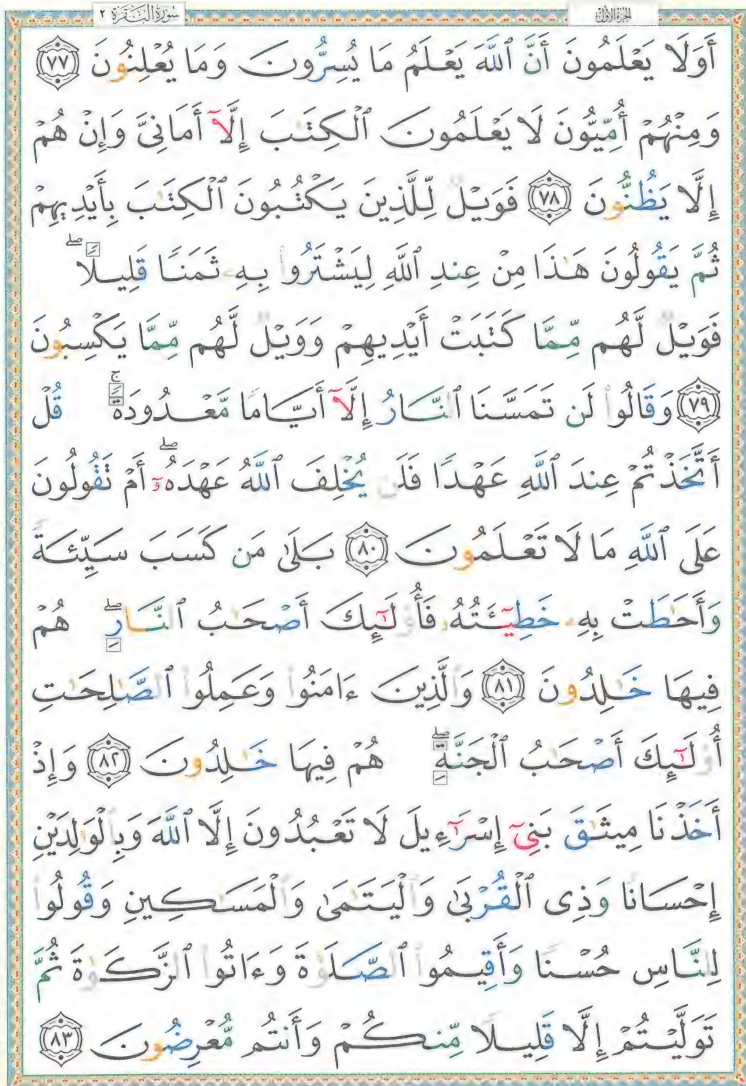 سُورَةُ الْبَقَرَةِ ٢ الجزء الأول
أَوَلَا يَعْلَمُونَ أَنَّ ٱللَّهَ يَعْلَمُ مَا يُسِرُّونَ وَمَا يُعْلِنُونَ ٧٧
وَمِنْهُمْ أُمِّيُّونَ لَا يَعْلَمُونَ ٱلْكِتَٰبَ إِلَّآ أَمَانِىَّ وَإِنْ هُمْ
إِلَّا يَظُنُّونَ ٧٨ فَوَيْلٌ لِّلَّذِينَ يَكْتُبُونَ ٱلْكِتَٰبَ بِأَيْدِيهِمْ
ثُمَّ يَقُولُونَ هَٰذَا مِنْ عِندِ ٱللَّهِ لِيَشْتَرُوا۟ بِهِۦ ثَمَنًا قَلِيلًا ۖ
فَوَيْلٌ لَّهُم مِّمَّا كَتَبَتْ أَيْدِيهِمْ وَوَيْلٌ لَّهُم مِّمَّا يَكْسِبُونَ
٧٩ وَقَالُوا۟ لَن تَمَسَّنَا ٱلنَّارُ إِلَّآ أَيَّامًا مَّعْدُودَةً ۚ قُلْ
أَتَّخَذْتُمْ عِندَ ٱللَّهِ عَهْدًا فَلَن يُخْلِفَ ٱللَّهُ عَهْدَهُۥٓ ۖ أَمْ تَقُولُونَ
عَلَى ٱللَّهِ مَا لَا تَعْلَمُونَ ٨٠ بَلَىٰ مَن كَسَبَ سَيِّئَةً
وَأَحَٰطَتْ بِهِۦ خَطِيٓـَٔتُهُۥ فَأُو۟لَٰٓئِكَ أَصْحَٰبُ ٱلنَّارِ ۖ هُمْ
فِيهَا خَٰلِدُونَ ٨١ وَٱلَّذِينَ ءَامَنُوا۟ وَعَمِلُوا۟ ٱلصَّٰلِحَٰتِ
أُو۟لَٰٓئِكَ أَصْحَٰبُ ٱلْجَنَّةِ ۖ هُمْ فِيهَا خَٰلِدُونَ ٨٢ وَإِذْ
أَخَذْنَا مِيثَٰقَ بَنِىٓ إِسْرَٰٓءِيلَ لَا تَعْبُدُونَ إِلَّا ٱللَّهَ وَبِٱلْوَٰلِدَيْنِ
إِحْسَانًا وَذِى ٱلْقُرْبَىٰ وَٱلْيَتَٰمَىٰ وَٱلْمَسَٰكِينِ وَقُولُوا۟
لِلنَّاسِ حُسْنًا وَأَقِيمُوا۟ ٱلصَّلَوٰةَ وَءَاتُوا۟ ٱلزَّكَوٰةَ ثُمَّ
تَوَلَّيْتُمْ إِلَّا قَلِيلًا مِّنكُمْ وَأَنتُم مُّعْرِضُونَ ٨٣